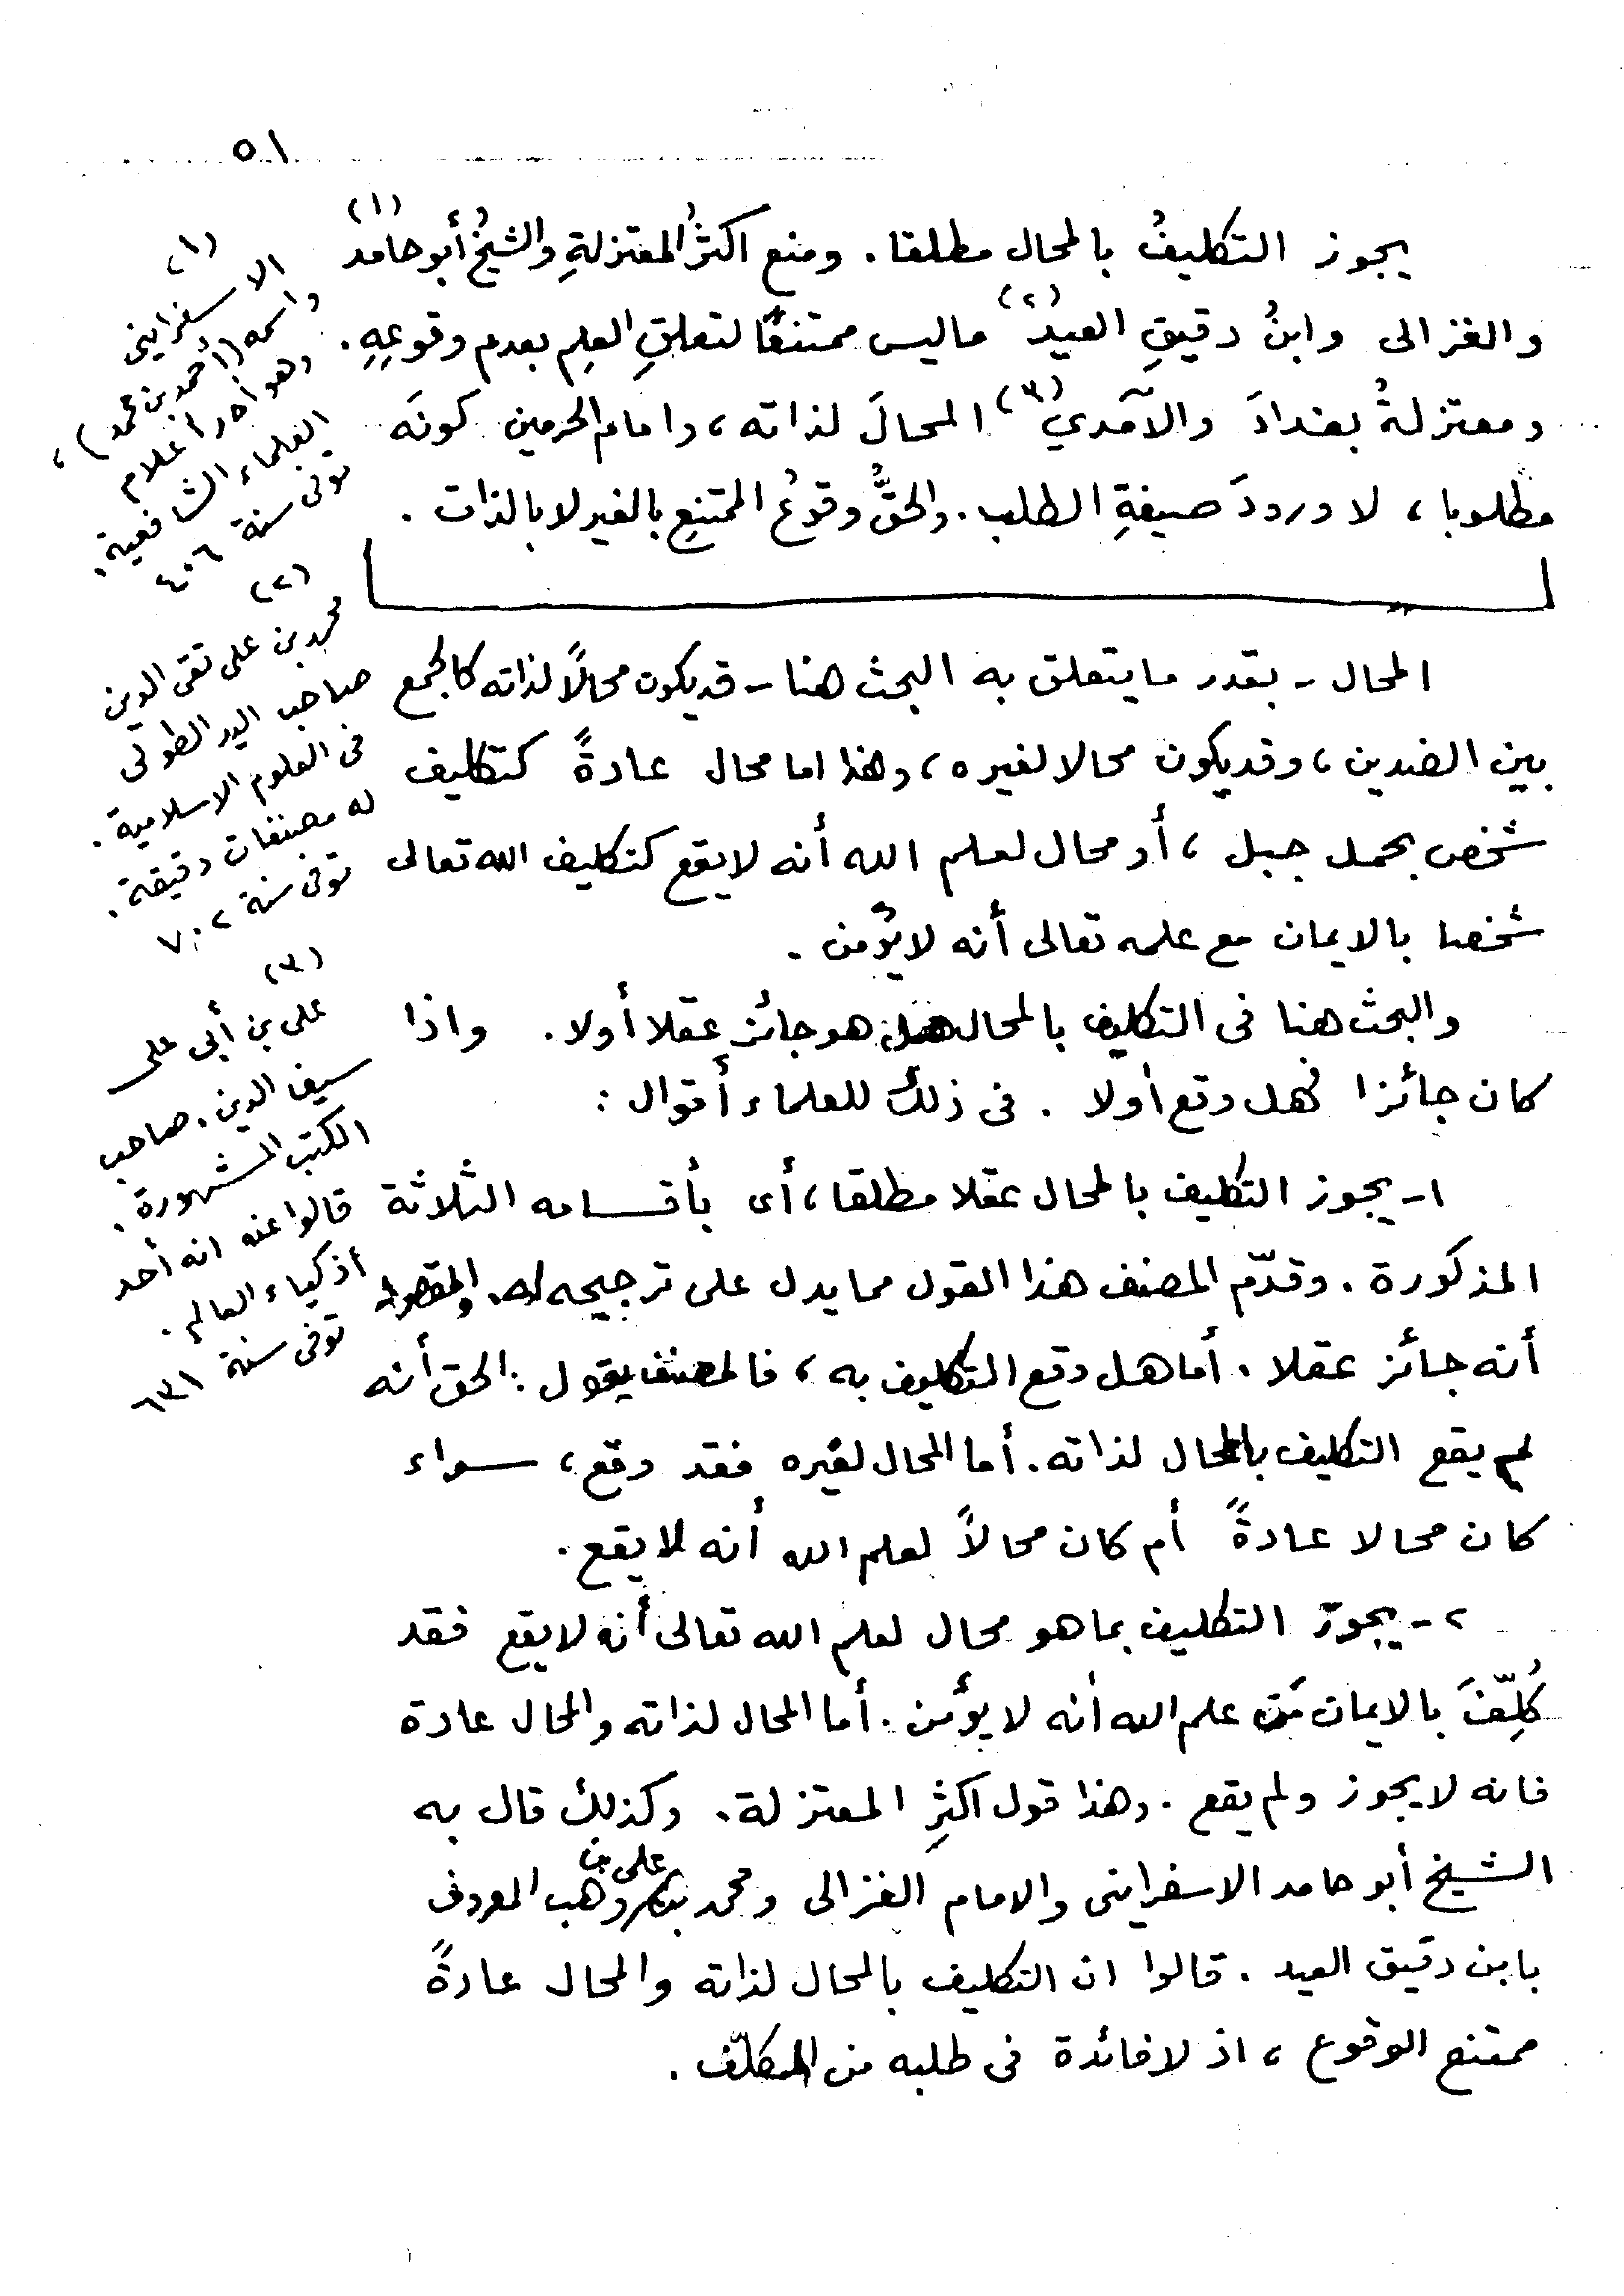 ٥١
يجوز التكليفُ بالمحال مطلقا. ومنع اكثرُ المعتزلةِ والشيخُ أبو حامد (١)
والغزالى وابنُ دقيقِ العيد (٢) ماليس ممتنعًا لتعلقِ العلمِ بعدم وقوعِهِ.
ومعتزلةُ بغدادَ والآمدي (٣) المحالَ لذاته، وامام الحرمين كونَه
مطلوبا، لا ورودَ صيغةِ الطلب. والحقُّ وقوعُ الممتنعِ بالغير لا بالذات.
المحال - بقدر ما يتعلق به البحث هنا - قد يكون محالًا لذاته كالجمع
بين الضدين، وقد يكون محالا لغيره، وهذا اما محال عادةً كتكليف
شخص بحمل جبل، أو محال لعلم الله أنه لا يقع كتكليف الله تعالى
شخصا بالايمان مع علمه تعالى أنه لا يؤمن.
والبحث هنا فى التكليف بالمحال هل هو جائز عقلا أولا. واذا
كان جائزا فهل وقع أولا. فى ذلك للعلماء أقوال:
١- يجوز التكليف بالمحال عقلا مطلقا، أى بأقسامه الثلاثة
المذكورة. وقدّم المصنف هذا القول مما يدل على ترجيحه له. والمقصود
أنه جائز عقلا. أما هل وقع التكليف به، فالمصنف يقول: الحق أنه
لم يقع التكليف بالمحال لذاته. أما المحال لغيره فقد وقع، سواء
كان محالا عادةً أم كان محالاً لعلم الله أنه لا يقع.
٢- يجوز التكليف بما هو محال لعلم الله تعالى أنه لا يقع فقد
كُلِّفَ بالايمان مَن علم الله أنه لا يؤمن. أما المحال لذاته والمحال عادة
فانه لا يجوز ولم يقع. وهذا قول اكثرِ المعتزلة. وكذلك قال به
الشيخ أبو حامد الاسفراينى والامام الغزالى ومحمد بن على بن وهب المعروف
بابن دقيق العيد. قالوا ان التكليف بالمحال لذاته والمحال عادةً
ممتنع الوقوع، اذ لا فائدة فى طلبه من المكلّف.
(١)
الاسفراينى
واسمه (أحمد بن محمد)،
وهو أحد أعلام
العلماء الشافعية.
توفى سنة ٤٠٦
(٢)
محمد بن على تقى الدين
صاحب اليد الطولى
فى العلوم الاسلامية.
له مصنفات دقيقة.
توفى سنة ٧٠٢
(٣)
على بن أبى على
سيف الدين. صاحب
الكتب المشهورة.
قالوا عنه انه أحد
أذكياء العالم.
توفى سنة ٦٣١